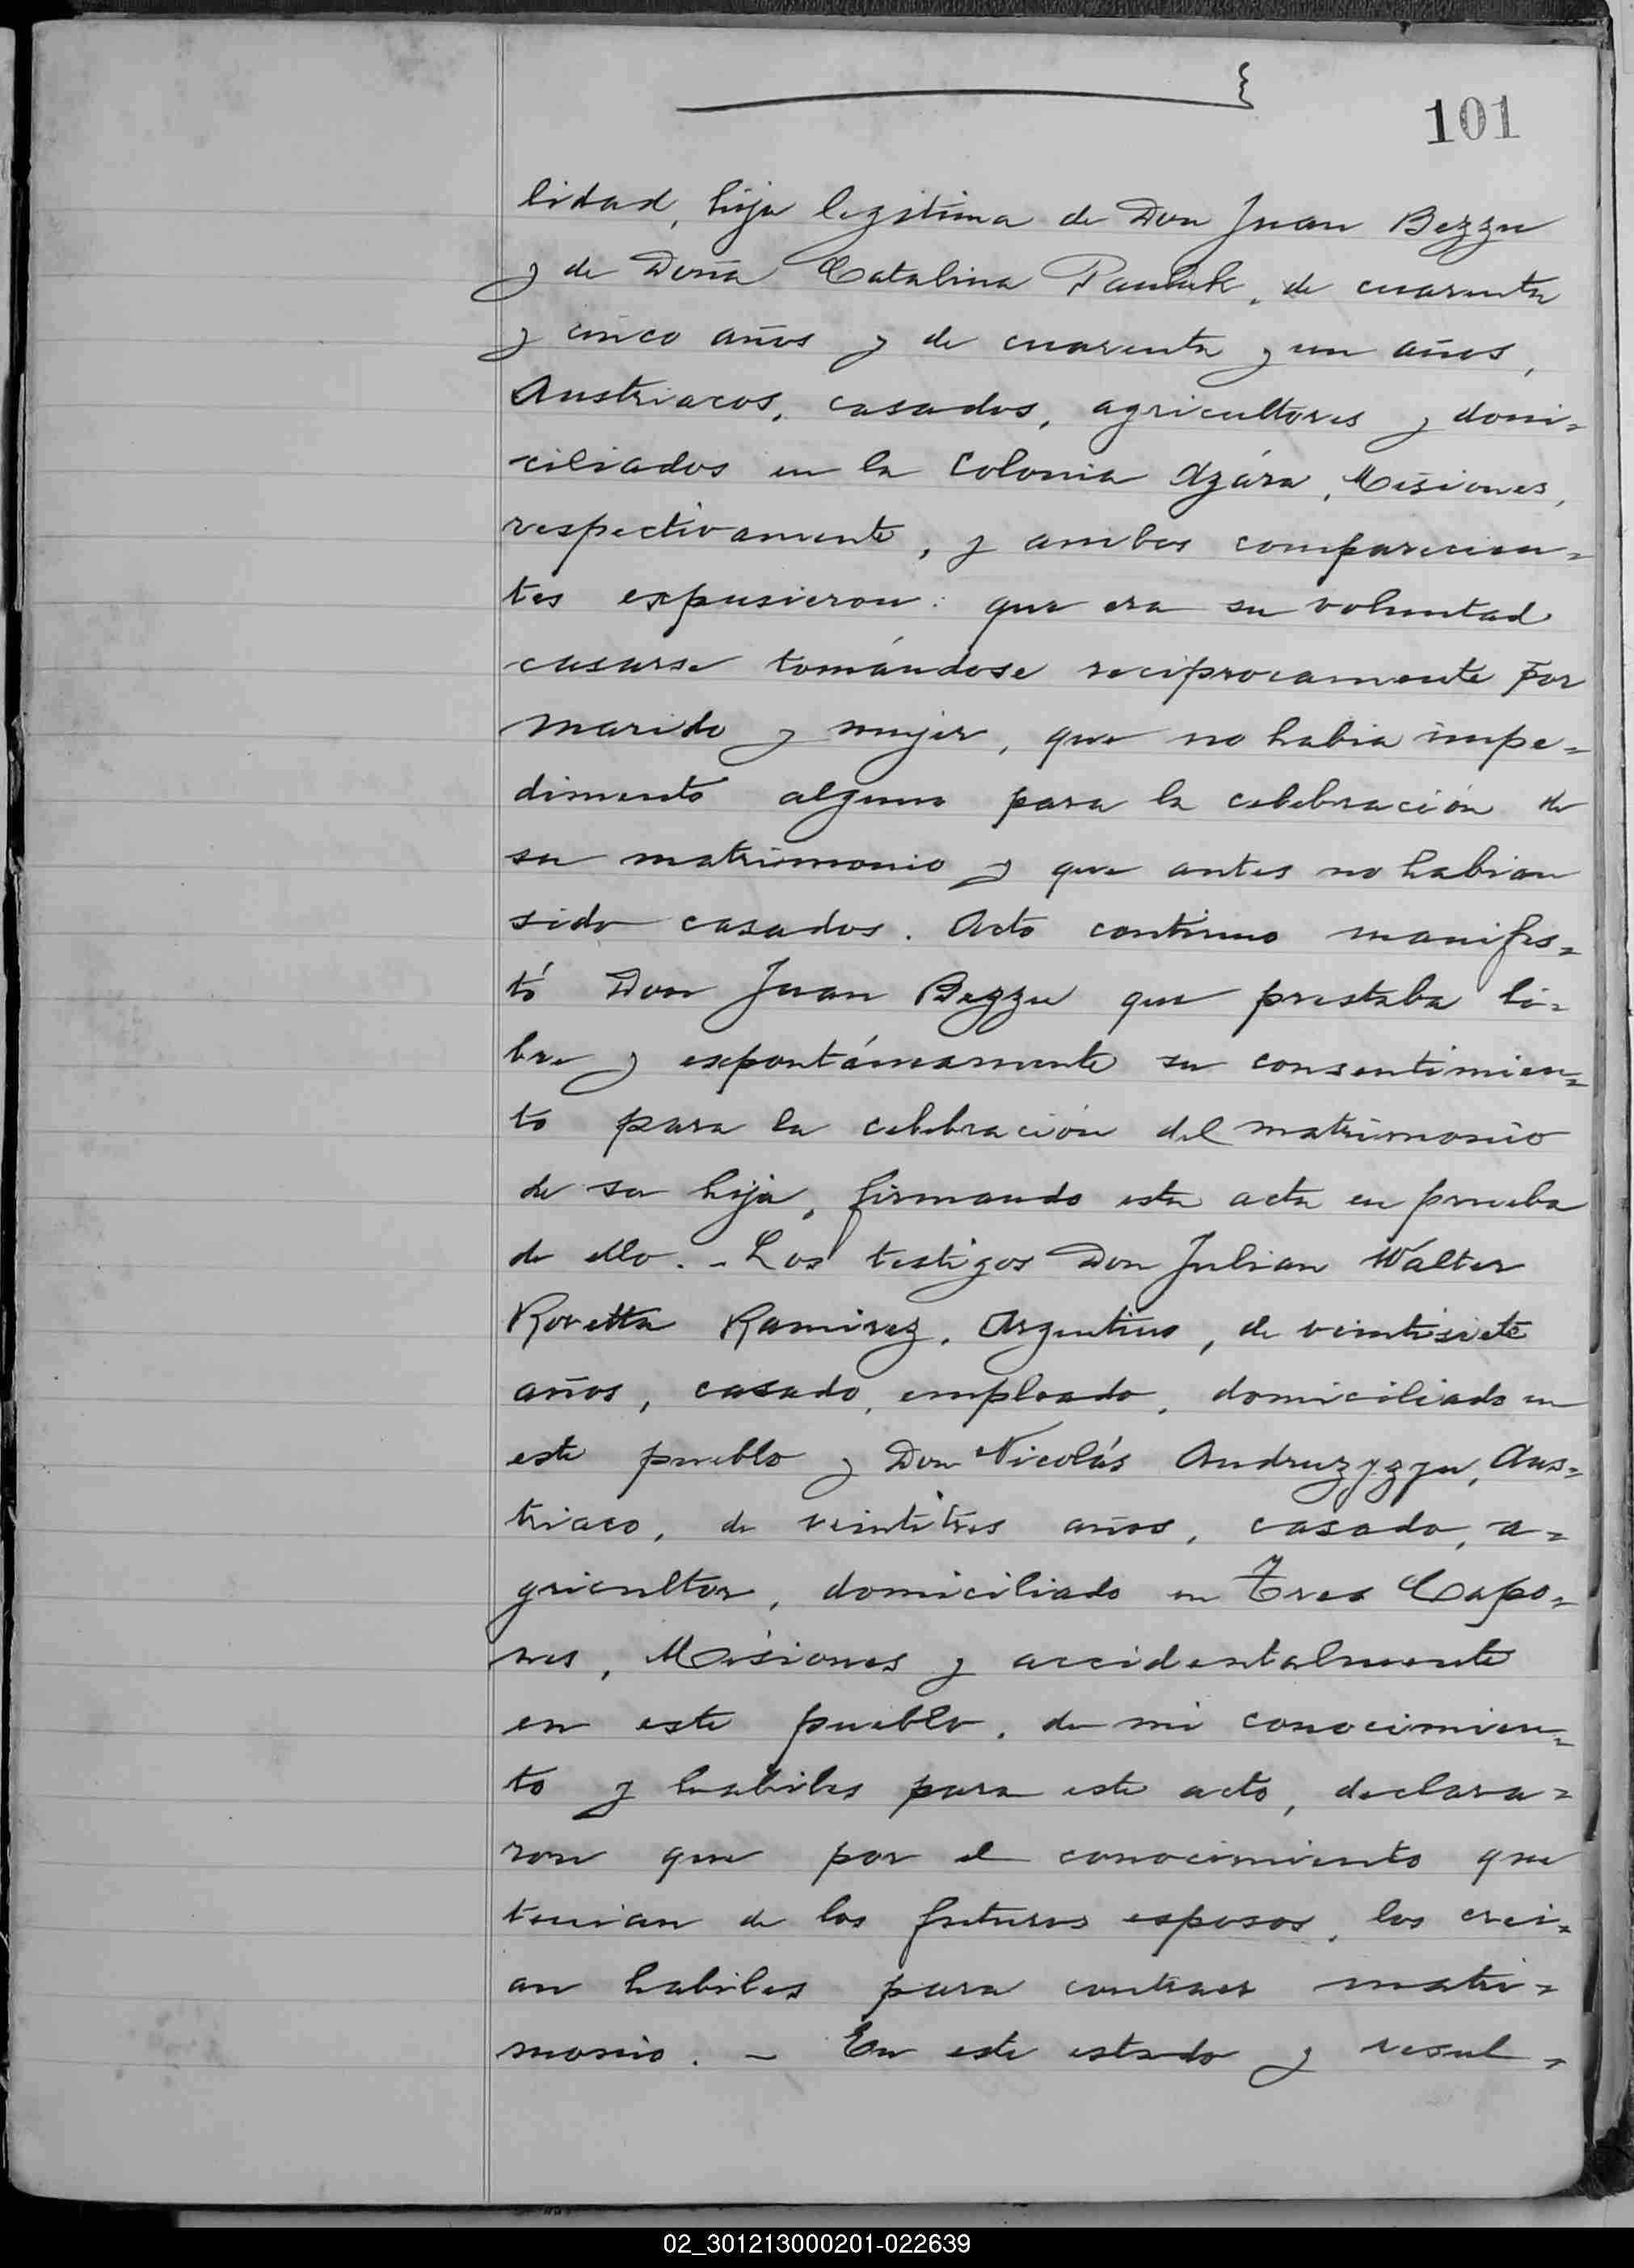 101
lidad, hija legítima de Don Juan Bezzu
y de Doña Catalina Pauluk, de cuarenta
y cinco años y de cuarenta y un años,
Austriacos, casados, agricultores y domi=
ciliados en la Colonia Azára, Misiones,
respectivamente, y ambos comparecien=
tes expusieron: que era su voluntad
casarse tomándose reciprocamente por
marido y mujer, que no habia impe=
dimento alguno para la celebración de
su matrimonio y que antes no habian
sido casados. Acto continuo manifes=
tó Don Juan Bezzu que prestaba li=
bre y expontáneamente su consentimien=
to para la celebración del matrimonio
de su hija, firmando esta acta en prueba
de ello. - Los testigos Don Julian Walter
Rovetta Ramirez, Argentino, de veintisiete
años, casado, empleado, domiciliado en
este pueblo y Don Nicolás Andruzyzyn, Aus=
triaco, de veintitres años, casado, a=
gricultor, domiciliado en Tres Capo=
nes, Misiones y accidentalmente
en este pueblo, de mi conocimien=
to y habiles para este acto, declara=
ron que por el conocimiento que
tenian de los futuros esposos, los crei=
an habiles para contraer matri=
monio. - En este estado y resul=
02_301213000201-022639